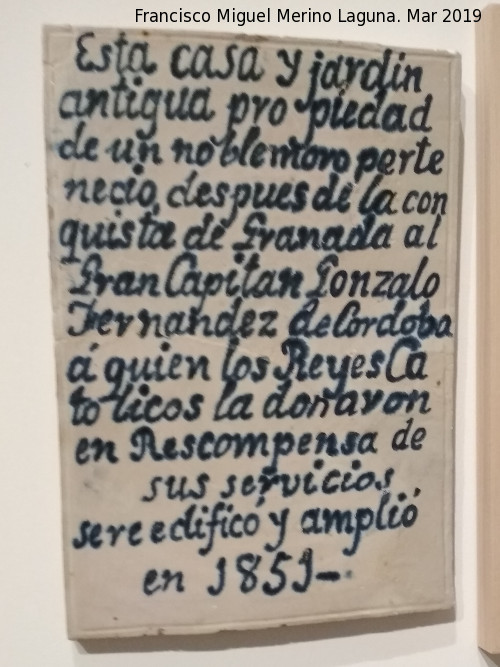 Francisco Miguel Merino Laguna. Mar 2019
Esta casa y jardin
antigua pro piedad
de un noble moro perte
necio, despues de la con
quista de Granada al
Gran Capitan Gonzalo
Fernandez de Cordoba
á quien los Reyes Ca
tolicos la donaron
en Rescompensa de
sus servicios
se reedificó y amplió
en 1851-